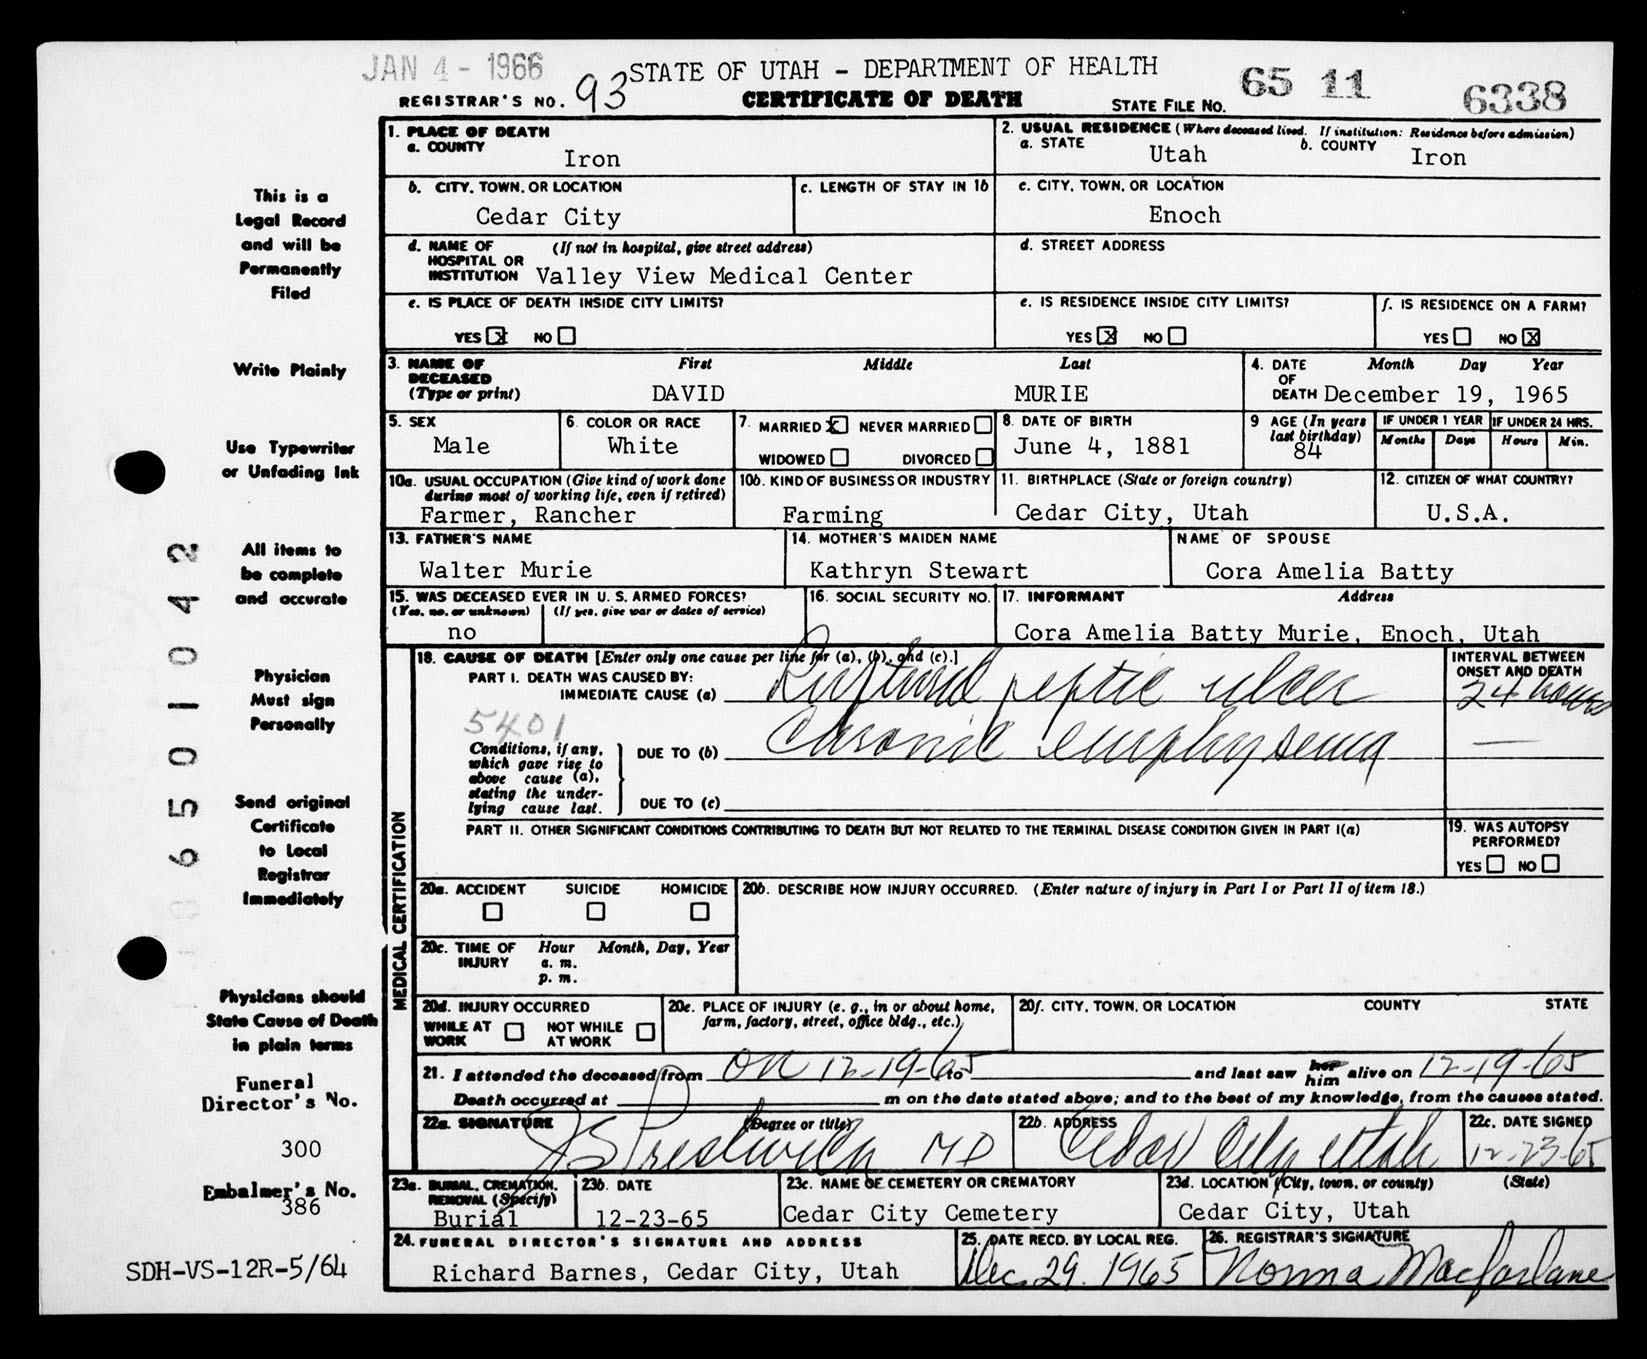 JAN 4 - 1966
STATE OF UTAH - DEPARTMENT OF HEALTH
65 11 6338
REGISTRAR'S NO. 93
CERTIFICATE OF DEATH
STATE FILE NO.
1. PLACE OF DEATH
a. COUNTY
Iron
2. USUAL RESIDENCE (Where deceased lived. If institution: Residence before admission)
a. STATE Utah b. COUNTY Iron
b. CITY, TOWN, OR LOCATION
Cedar City
c. LENGTH OF STAY IN 1b
c. CITY, TOWN, OR LOCATION
Enoch
d. NAME OF HOSPITAL OR INSTITUTION (If not in hospital, give street address)
Valley View Medical Center
d. STREET ADDRESS
e. IS PLACE OF DEATH INSIDE CITY LIMITS?
YES X NO
e. IS RESIDENCE INSIDE CITY LIMITS?
YES X NO
f. IS RESIDENCE ON A FARM?
YES NO X
3. NAME OF DECEASED (Type or print)
First Middle Last
DAVID MURIE
4. DATE OF DEATH
Month Day Year
December 19, 1965
5. SEX
Male
6. COLOR OR RACE
White
7. MARRIED X NEVER MARRIED
WIDOWED DIVORCED
8. DATE OF BIRTH
June 4, 1881
9 AGE (In years last birthday)
84
IF UNDER 1 YEAR
Months Days
IF UNDER 24 HRS.
Hours Min.
10a. USUAL OCCUPATION (Give kind of work done during most of working life, even if retired)
Farmer, Rancher
10b. KIND OF BUSINESS OR INDUSTRY
Farming
11. BIRTHPLACE (State or foreign country)
Cedar City, Utah
12. CITIZEN OF WHAT COUNTRY?
U.S.A.
13. FATHER'S NAME
Walter Murie
14. MOTHER'S MAIDEN NAME
Kathryn Stewart
NAME OF SPOUSE
Cora Amelia Batty
15. WAS DECEASED EVER IN U.S. ARMED FORCES?
(Yes, no, or unknown) (If yes, give war or dates of service)
no
16. SOCIAL SECURITY NO.
17. INFORMANT Address
Cora Amelia Batty Murie, Enoch, Utah
MEDICAL CERTIFICATION
18. CAUSE OF DEATH [Enter only one cause per line for (a), (b), and (c).]
PART I. DEATH WAS CAUSED BY:
IMMEDIATE CAUSE (a) Ruptured peptic ulcer
INTERVAL BETWEEN ONSET AND DEATH
24 hours
5401
Conditions, if any, which gave rise to above cause (a), stating the underlying cause last.
DUE TO (b) Chronic emphysema —
DUE TO (c)
PART II. OTHER SIGNIFICANT CONDITIONS CONTRIBUTING TO DEATH BUT NOT RELATED TO THE TERMINAL DISEASE CONDITION GIVEN IN PART I(a)
19. WAS AUTOPSY PERFORMED?
YES NO
20a. ACCIDENT SUICIDE HOMICIDE
20b. DESCRIBE HOW INJURY OCCURRED. (Enter nature of injury in Part I or Part II of item 18.)
20c. TIME OF INJURY
Hour Month, Day, Year
a. m.
p. m.
20d. INJURY OCCURRED
WHILE AT WORK NOT WHILE AT WORK
20e. PLACE OF INJURY (e. g., in or about home, farm, factory, street, office bldg., etc.)
20f. CITY, TOWN, OR LOCATION COUNTY STATE
21. I attended the deceased from on 12-19-65 to and last saw her him alive on 12-19-65
Death occurred at m on the date stated above; and to the best of my knowledge, from the causes stated.
22a. SIGNATURE (Degree or title)
JS Prestwich MD
22b. ADDRESS
Cedar City Utah
22c. DATE SIGNED
12-23-65
23a. BURIAL, CREMATION, REMOVAL (Specify)
Burial
23b. DATE
12-23-65
23c. NAME OF CEMETERY OR CREMATORY
Cedar City Cemetery
23d. LOCATION (City, town, or county) (State)
Cedar City, Utah
24. FUNERAL DIRECTOR'S SIGNATURE AND ADDRESS
Richard Barnes, Cedar City, Utah
25. DATE RECD. BY LOCAL REG.
Dec 29. 1965
26. REGISTRAR'S SIGNATURE
Norma Macfarlane
This is a
Legal Record
and will be
Permanently
Filed
Write Plainly
Use Typewriter
or Unfading Ink
All items to
be complete
and accurate
Physician
Must sign
Personally
Send original
Certificate
to Local
Registrar
Immediately
Physicians should
State Cause of Death
in plain terms
Funeral
Director's No.
300
Embalmer's No.
386
SDH-VS-12R-5/64
06501042